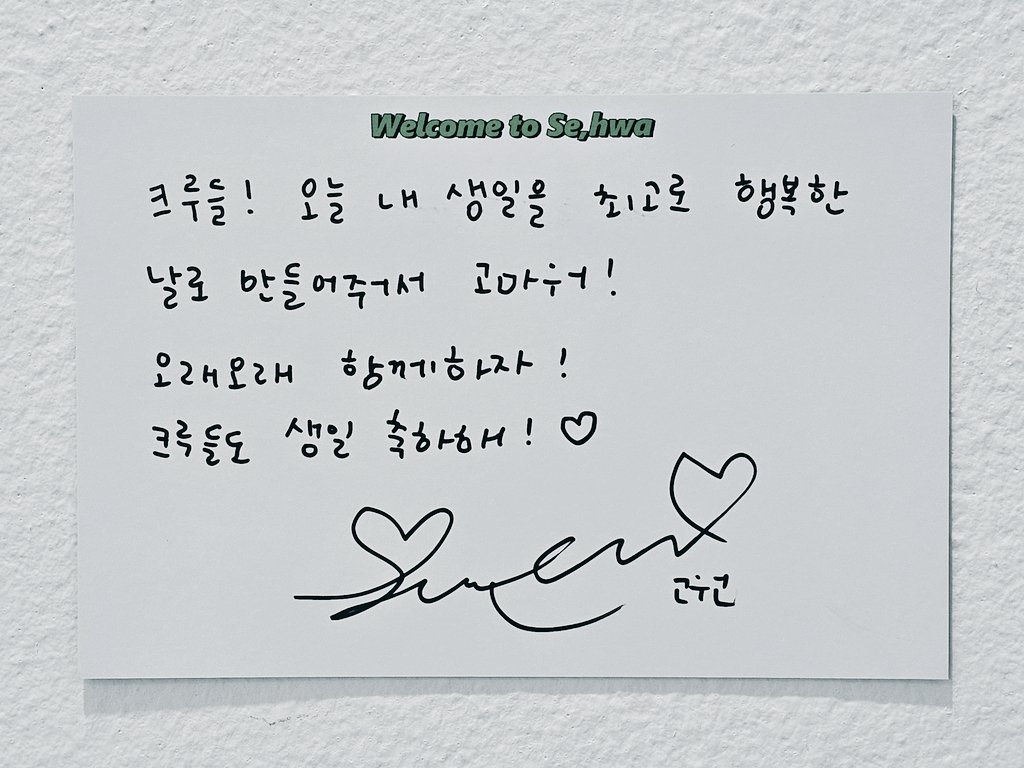 Welcome to Se,hwa
크루들! 오늘 내 생일을 최고로 행복한
날로 만들어주어서 고마워!
오래오래 함께하자!
크루들도 생일 축하해! ♡
고우건